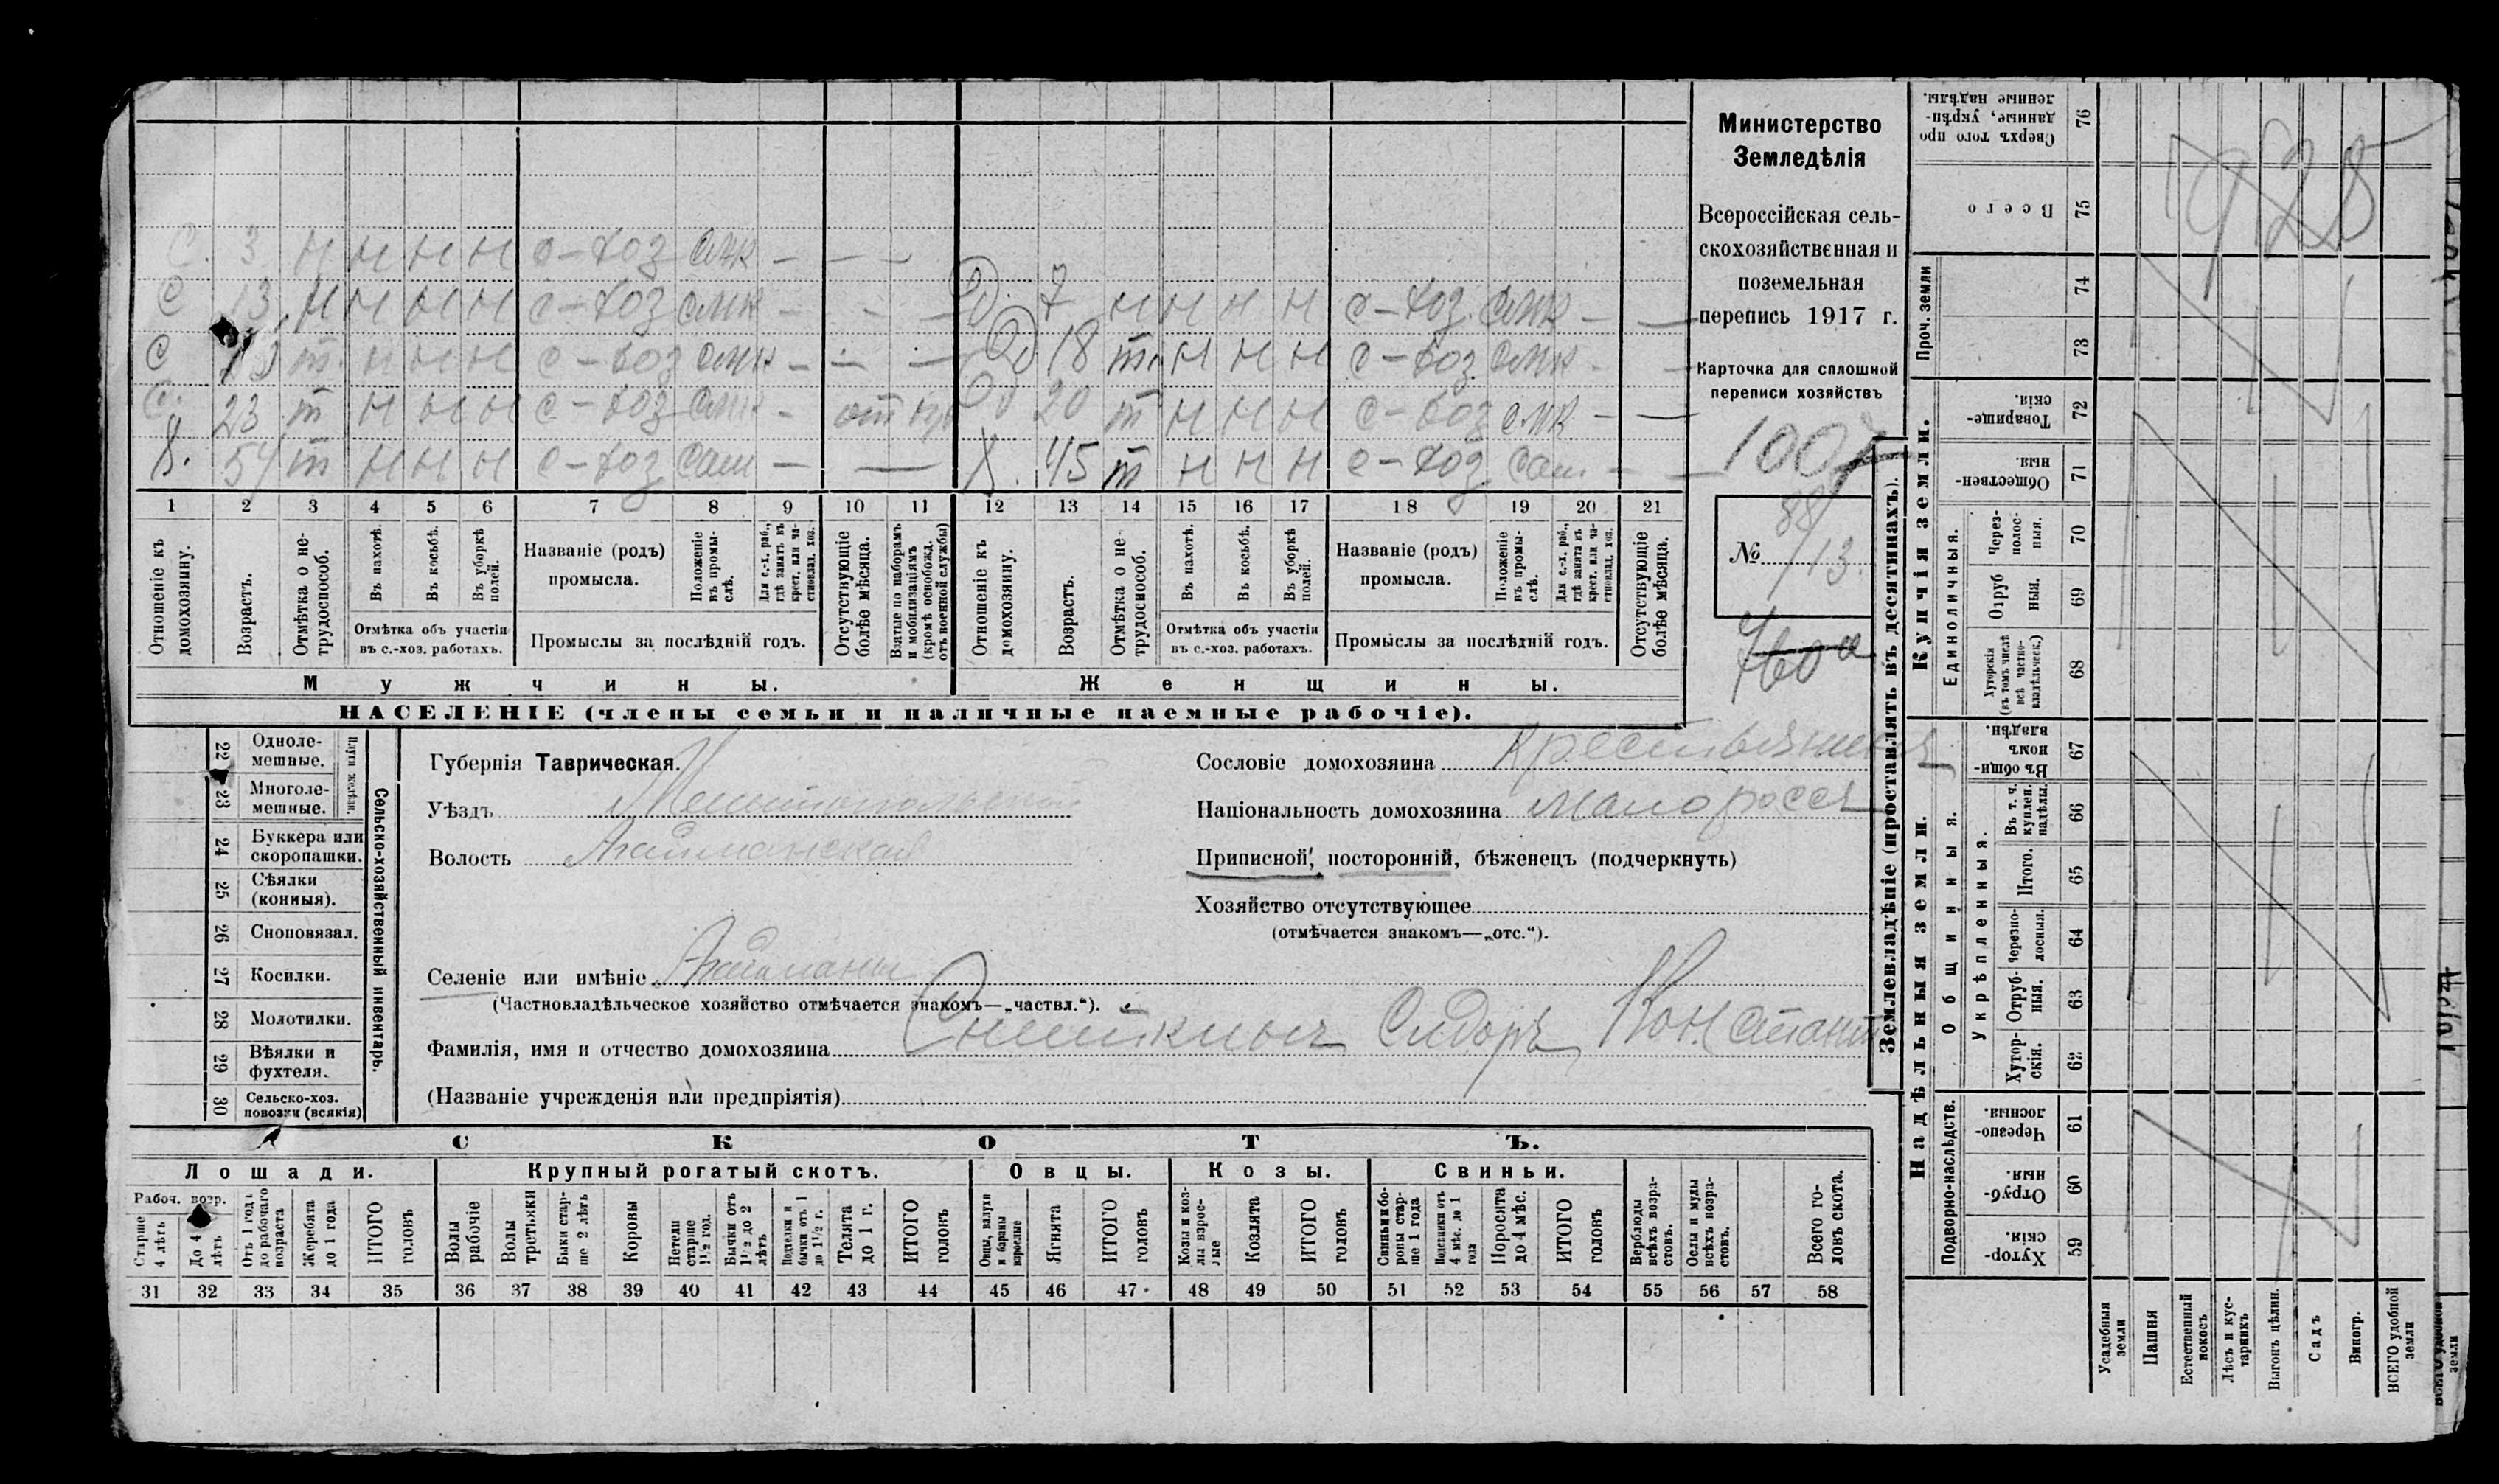 С. 3 Н Н Н Н с-хоз смк - - -
С 13 Н Н Н Н с-хоз смк - - - Д. 7 Н Н Н Н с-хоз смк - -
С т. Н Н Н с-хоз смк - - - Д 18 т. Н Н Н с-хоз смк - -
С. 23 т Н Н Н с-хоз смк - 20 т Н Н Н с-хоз смк - -
Х. 54 т Н Н Н с-хоз сам - - Х. 45 т Н Н Н с-хоз сам - -
1 2 3 4 5 6 7 8 9 10 11 12 13 14 15 16 17 18 19 20 21
Отношеніе къ домохозяину.
Возрастъ.
Отмѣтка о не-трудоспособ.
Въ пахотѣ.
Въ косьбѣ.
Въ уборкѣ полей.
Отмѣтка объ участіи
въ с.-хоз. работахъ.
Названіе (родъ)
промысла.
Положеніе въ промы-слѣ.
Для с.-х. раб., гдѣ занятъ въ крест. или ча-стновлад. хоз.
Промыслы за послѣдній годъ.
Отсутствующіе болѣе мѣсяца.
Взятые по наборамъ и мобилизаціямъ (кромѣ освобожд. отъ военной службы)
Отношеніе къ домохозяину.
Возрастъ.
Отмѣтка о не-трудоспособ.
Въ пахотѣ.
Въ косьбѣ.
Въ уборкѣ полей.
Отмѣтка объ участіи
въ с.-хоз. работахъ.
Названіе (родъ)
промысла.
Положеніе въ промы-слѣ.
Для с.-х. раб., гдѣ занята въ крест. или ча-стновлад. хоз.
Промыслы за послѣдній годъ.
Отсутствующіе болѣе мѣсяца.
Мужчины.
Женщины.
НАСЕЛЕНІЕ (члены семьи и наличные наемные рабочіе).
Министерство
Земледѣлія
Всероссійская сель-
скохозяйственная и
поземельная
перепись 1917 г.
Карточка для сплошной
переписи хозяйствъ
1007
88
№ 13.
22 Одноле-мешные.
23 Многоле-мешные.
Плуги желѣзн.
24 Буккера или скоропашки.
25 Сѣялки (конныя).
26 Сноповязал.
27 Косилки.
28 Молотилки.
29 Вѣялки и фухтеля.
30 Сельско-хоз. повозки (всякія)
Сельско-хозяйственный инвентарь.
Губернія Таврическая.
Уѣздъ Мелитопольскій
Волость Агайманская
Селеніе или имѣніе Агайманы
(Частновладѣльческое хозяйство отмѣчается знакомъ—„частвл.“).
Фамилія, имя и отчество домохозяина Сидоръ Констант
(Названіе учрежденія или предпріятія)
Сословіе домохозяина крестьянинъ
Національность домохозяина малороссъ
Приписной, посторонній, бѣженецъ (подчеркнуть)
Хозяйство отсутствующее
(отмѣчается знакомъ—„отс.“).
СКОТЪ.
Лошади. Крупный рогатый скотъ. Овцы. Козы. Свиньи.
Рабоч. возр.
Старше 4 лѣтъ
До 4 лѣтъ
Отъ 1 года до рабочаго возраста
Жеребята до 1 года
ИТОГО головъ
Волы рабочіе
Волы третьяки
Быки стар-ше 2 лѣтъ
Коровы
Нетели старше 1½ год.
Бычки отъ 1½ до 2 лѣтъ
Подтелки и бычки отъ 1 до 1½ г.
Телята до 1 г.
ИТОГО головъ
Овцы, валухи и бараны взрослые
Ягнята
ИТОГО головъ
Козы и коз-лы взрос-лые
Козлята
ИТОГО головъ
Свиньи и бо-ровы стар-ше 1 года
Подсвинки отъ 4 мѣс. до 1 года
Поросята до 4 мѣс.
ИТОГО головъ
Верблюды всѣхъ возра-стовъ.
Ослы и мулы всѣхъ возра-стовъ.
Всего го-ловъ скота.
31 32 33 34 35 36 37 38 39 40 41 42 43 44 45 46 47 48 49 50 51 52 53 54 55 56 57 58
Землевладѣніе (проставлять въ десятинахъ).
Сверхъ того про-данные, укрѣп-ленные надѣлы. 76
Всего 75
Проч. земли 74 73
Купчія земли.
Товарище-скія. 72
Обществен-ныя. 71
Единоличныя.
Через-полос-ныя. 70
Отруб-ныя. 69
Хуторскія (въ томъ числѣ всѣ частно-владѣльческ.) 68
Надѣльныя земли.
Общинныя.
Въ общин-номъ владѣн. 67
Укрѣпленныя.
Въ т. ч. куплен. надѣлы. 66
Итого. 65
Черезпо-лосныя. 64
Отруб-ныя. 63
Хутор-скія. 62
Подворно-наслѣдств.
Черезпо-лосныя. 61
Отруб-ныя. 60
Хутор-скія. 59
Усадебныя земли
Пашня
Естественный покосъ
Лѣсъ и кус-тарникъ
Выгонъ цѣлин.
Садъ
Виногр.
ВСЕГО удобной земли